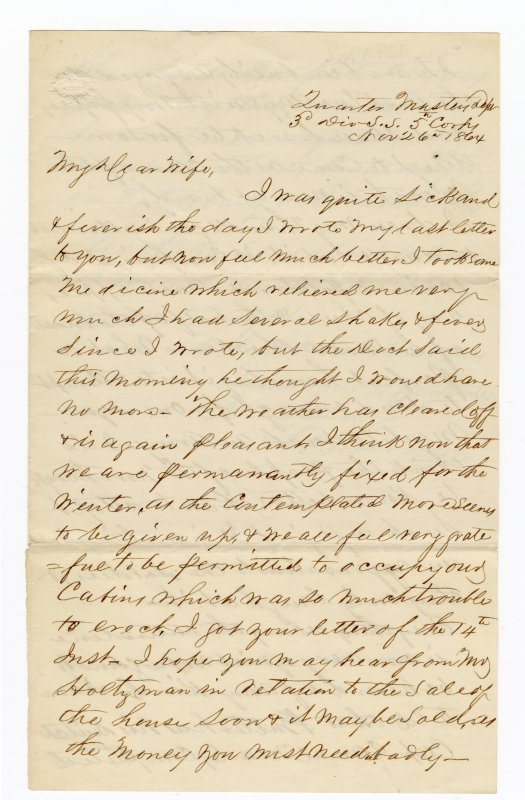 Quarter Masters Dep
3d Div S.S. 5th Corps
Nov 26th 1864
My Dear Wife,
I was quite Sick and
& feverish the day I wrote My last letter
to you, but now feel much better I took some
Medicine which relieved me very
much I had several shakes & fever
Since I wrote, but the Doct Said
this Morning he thought I would have
no more – The weather has cleared off
& is again pleasant. I think now that
we are permanantly fixed for the
Winter, as the Contemplated Move seems
to be given up, & we all feel very grate
=ful to be permitted to occupy our
Cabins which was so much trouble
to erect. I got your letter of the 14th
Inst – I hope you may hear from Mr
Holtzman in relation to the Sale of
the house soon & it may be Sold, as
the Money you must need badly –